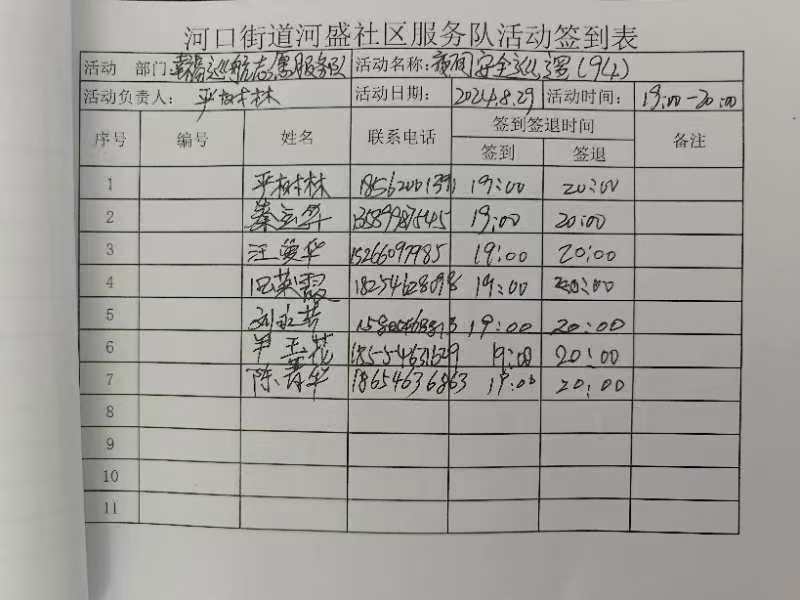 河口街道河盛社区服务队活动签到表
活动 部门: 幸福巡航志愿服务队 活动名称: 夜间安全巡逻(94)
活动负责人: 平树林 活动日期: 2024.8.29 活动时间: 19:00-20:00
序号 编号 姓名 联系电话 签到签退时间 备注
签到 签退
1 平树林 19:00 20:00
2 13589987545 19:00 20:00
3 汪爱华 15266097985 19:00 20:00
4 18254628098 19:00 20:00
5 刘永芳 19:00 20:00
6 尹玉花 18554631629 19:00 20:00
7 陈菁华 18654636863 19:00 20:00
8
9
10
11